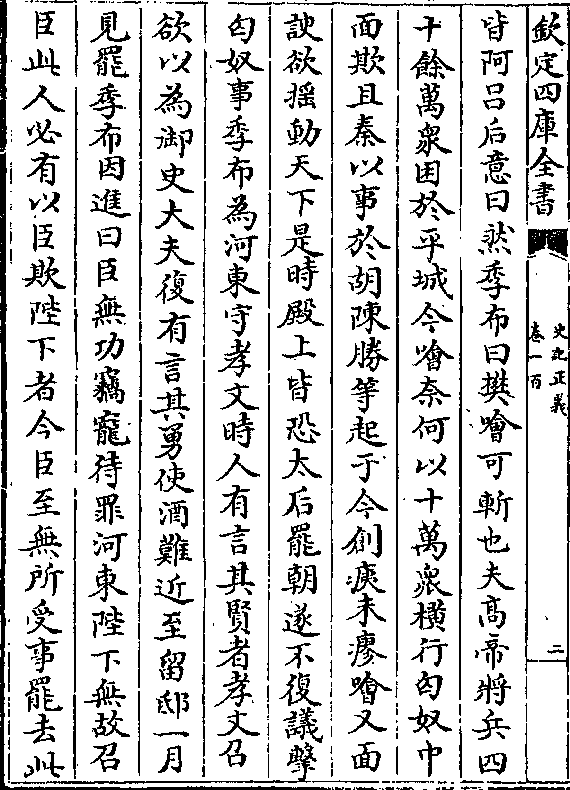 欽定四庫全書
史記正義
卷一百
二
皆阿吕后意曰然季布曰樊噲可斬也夫髙帝將兵四
十餘萬衆困於平城今噲奈何以十萬衆横行匈奴中
面欺且秦以事於胡陳勝等起于今創痍未瘳噲又面
諛欲揺動天下是時殿上皆恐太后罷朝遂不復議擊
匈奴事季布為河東守孝文時人有言其賢者孝文召
欲以為御史大夫復有言其勇使酒難近至留邸一月
見罷季布因進曰臣無功竊寵待罪河東陛下無故召
臣此人必有以臣欺陛下者今臣至無所受事罷去此